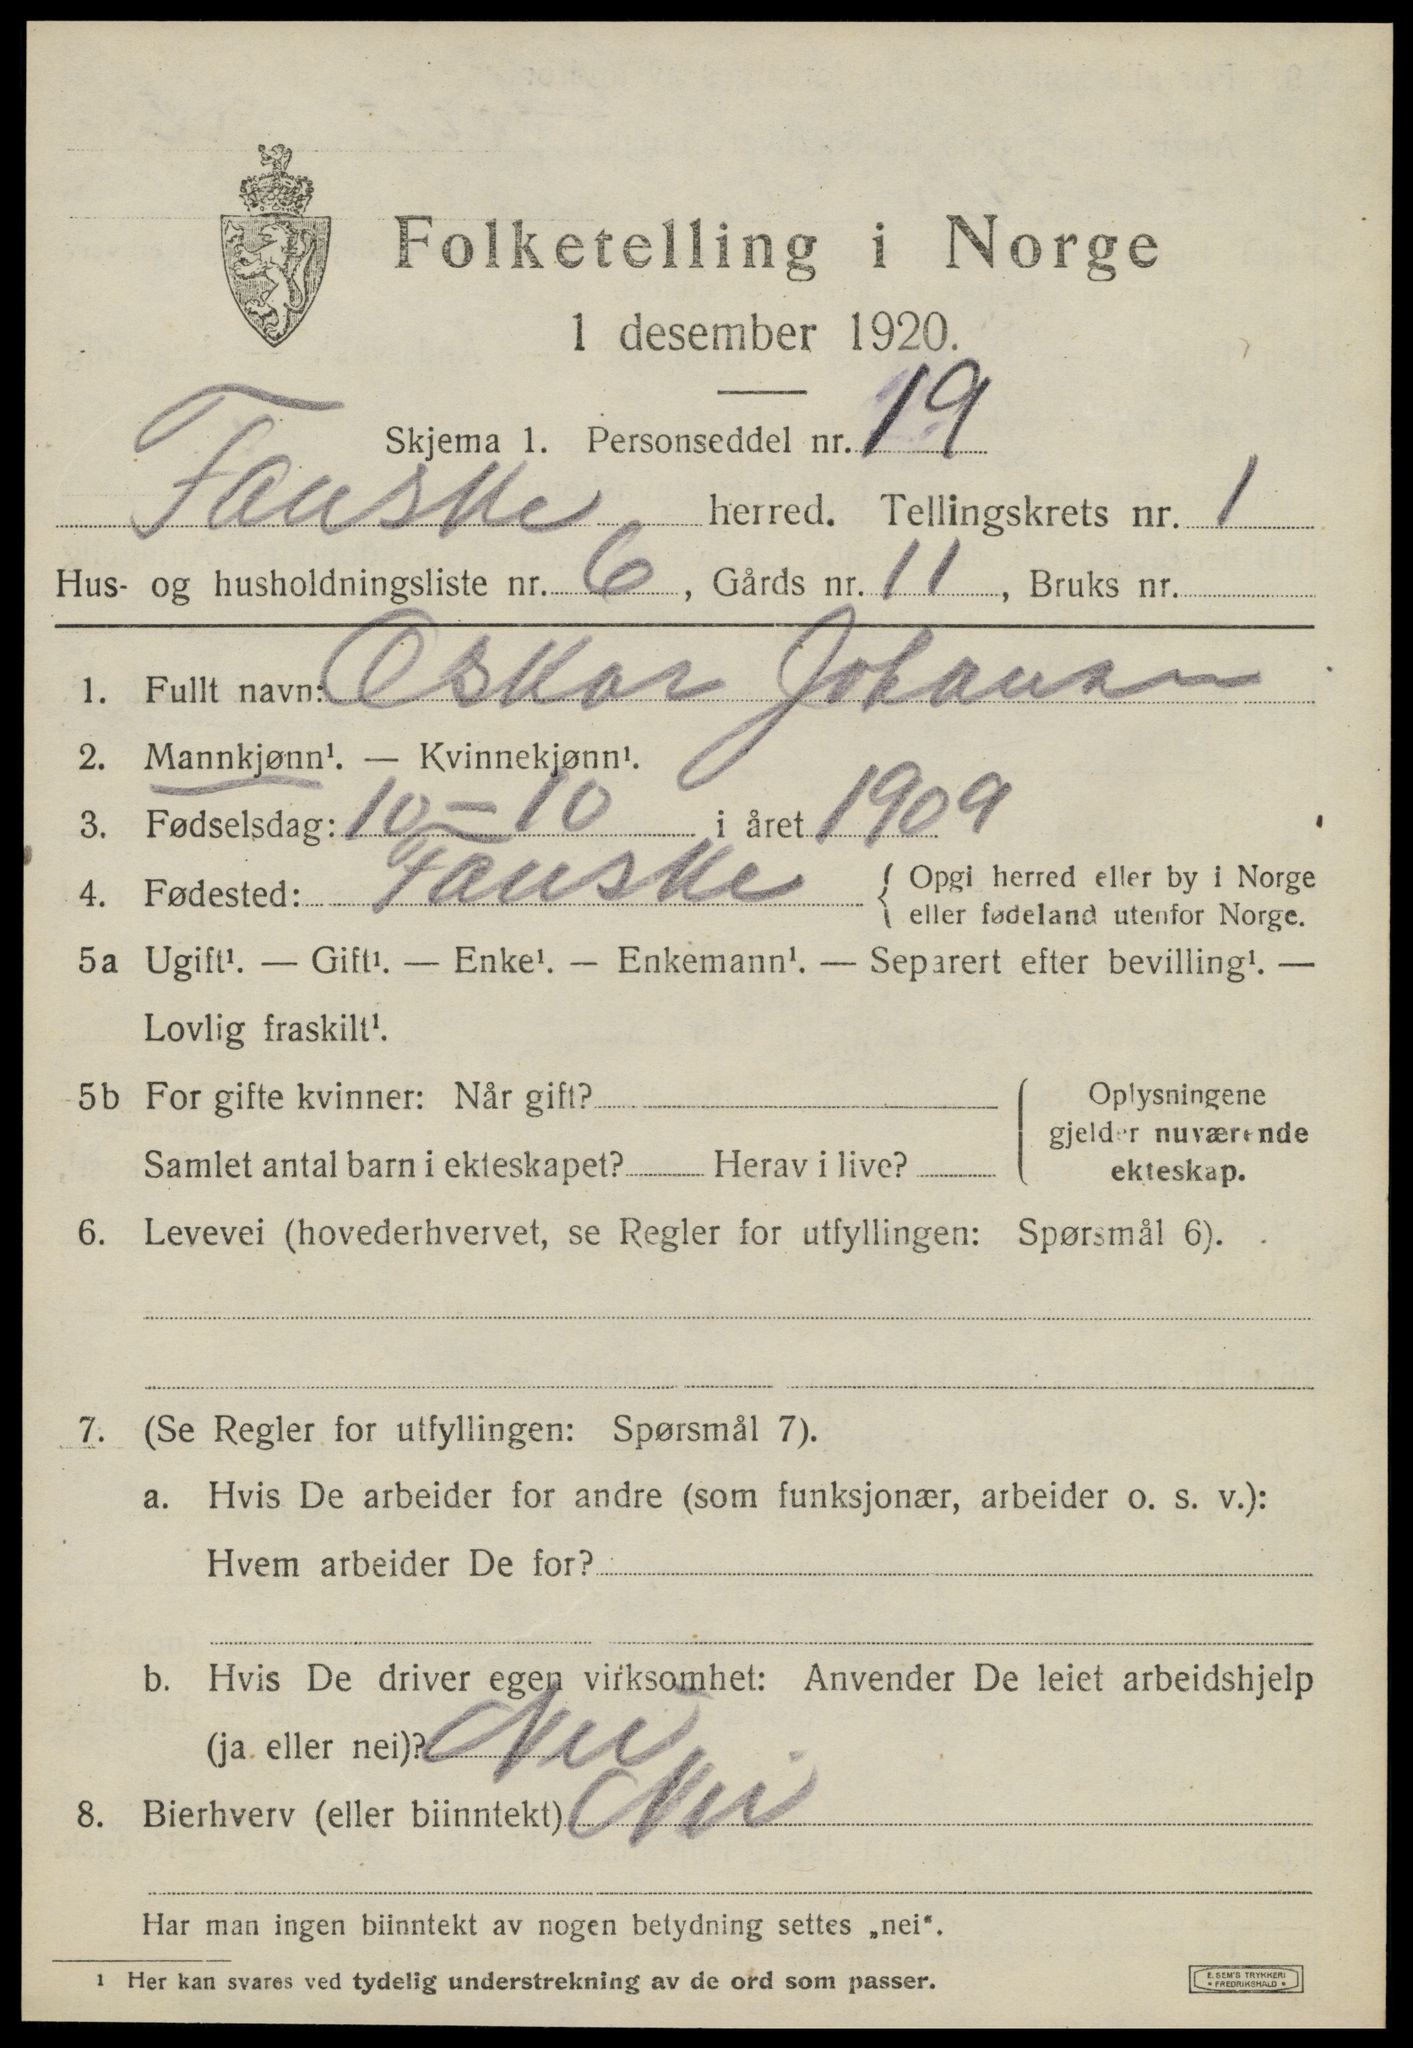 Folketelling i Norge
1 desember 1920.
Skjema 1. Personseddel nr. 19
Fauske herred. Tellingskrets nr. 1
Hus- og husholdningsliste nr. 6, Gårds nr. 11, Bruks nr.
1. Fullt navn: Oskar Johansen
2. Mannkjønn¹. — Kvinnekjønn¹.
3. Fødselsdag: 10 – 10 i året 1909
4. Fødested: Fauske { Opgi herred eller by i Norge
eller fødeland utenfor Norge.
5a Ugift¹. — Gift¹. — Enke¹. — Enkemann¹. — Separert efter bevilling¹. —
Lovlig fraskilt¹.
5b For gifte kvinner: Når gift?
Samlet antal barn i ekteskapet? Herav i live?
Oplysningene
gjelder nuværende
ekteskap.
6. Levevei (hovederhvervet, se Regler for utfyllingen: Spørsmål 6).
7. (Se Regler for utfyllingen: Spørsmål 7).
a. Hvis De arbeider for andre (som funksjonær, arbeider o. s. v.):
Hvem arbeider De for?
b. Hvis De driver egen virksomhet: Anvender De leiet arbeidshjelp
(ja eller nei)? Nei
8. Bierhverv (eller biinntekt) Nei
Har man ingen biinntekt av nogen betydning settes „nei“.
1 Her kan svares ved tydelig understrekning av de ord som passer.
E. SEM'S TRYKKERI
FREDRIKSHALD